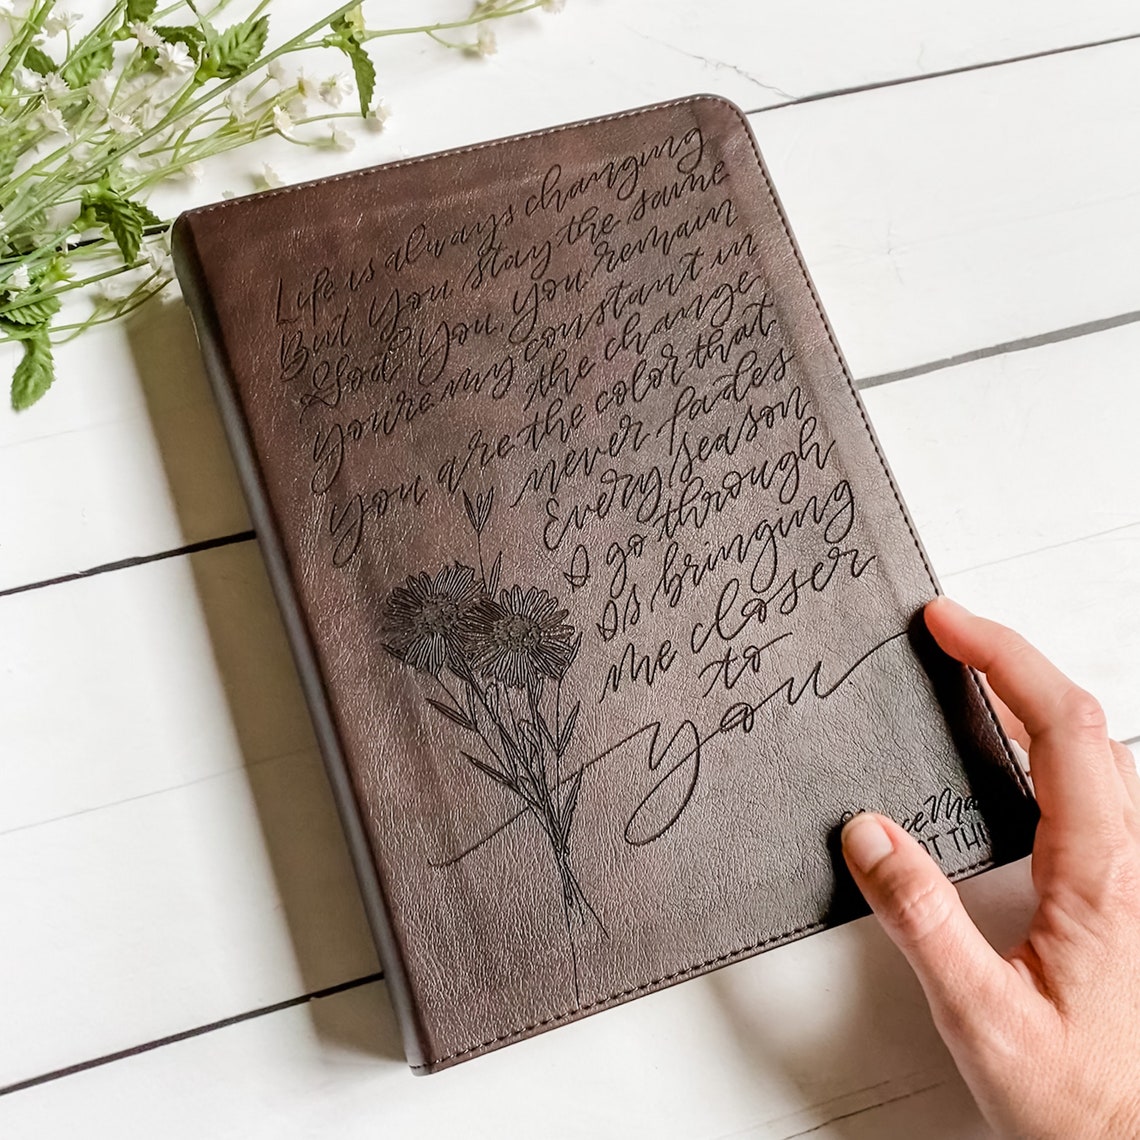 Life is always changing
But You stay the same
God You, You remain
You're my constant in
the change
You are the color that
never fades
Every season
I go through
Is bringing
me closer
to
You
THI